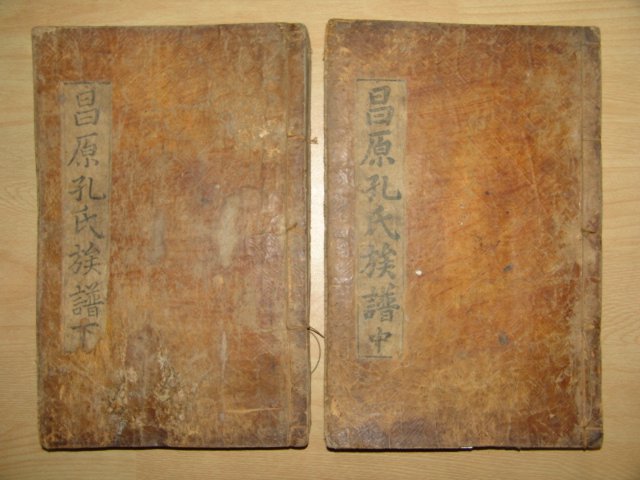 昌原孔氏族譜中
昌原孔氏族譜下